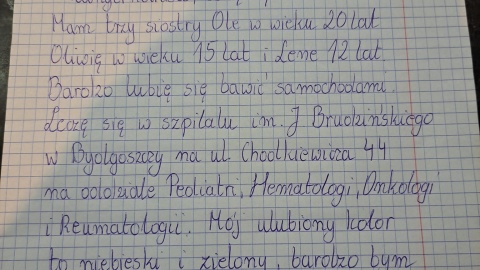 Mam trzy siostry Ole w wieku 20 lat
Oliwię w wieku 15 lat i Lene 12 lat.
Bardzo lubię się bawić samochodami.
Leczę się w szpitalu im. J Brudzińskiego
w Bydgoszczy na ul. Chodkiewicza 44
na oddziale Pediatri, Hematologi, Onkologi
i Reumatologii. Mój ulubiony kolor
to niebieski i zielony, bardzo bym